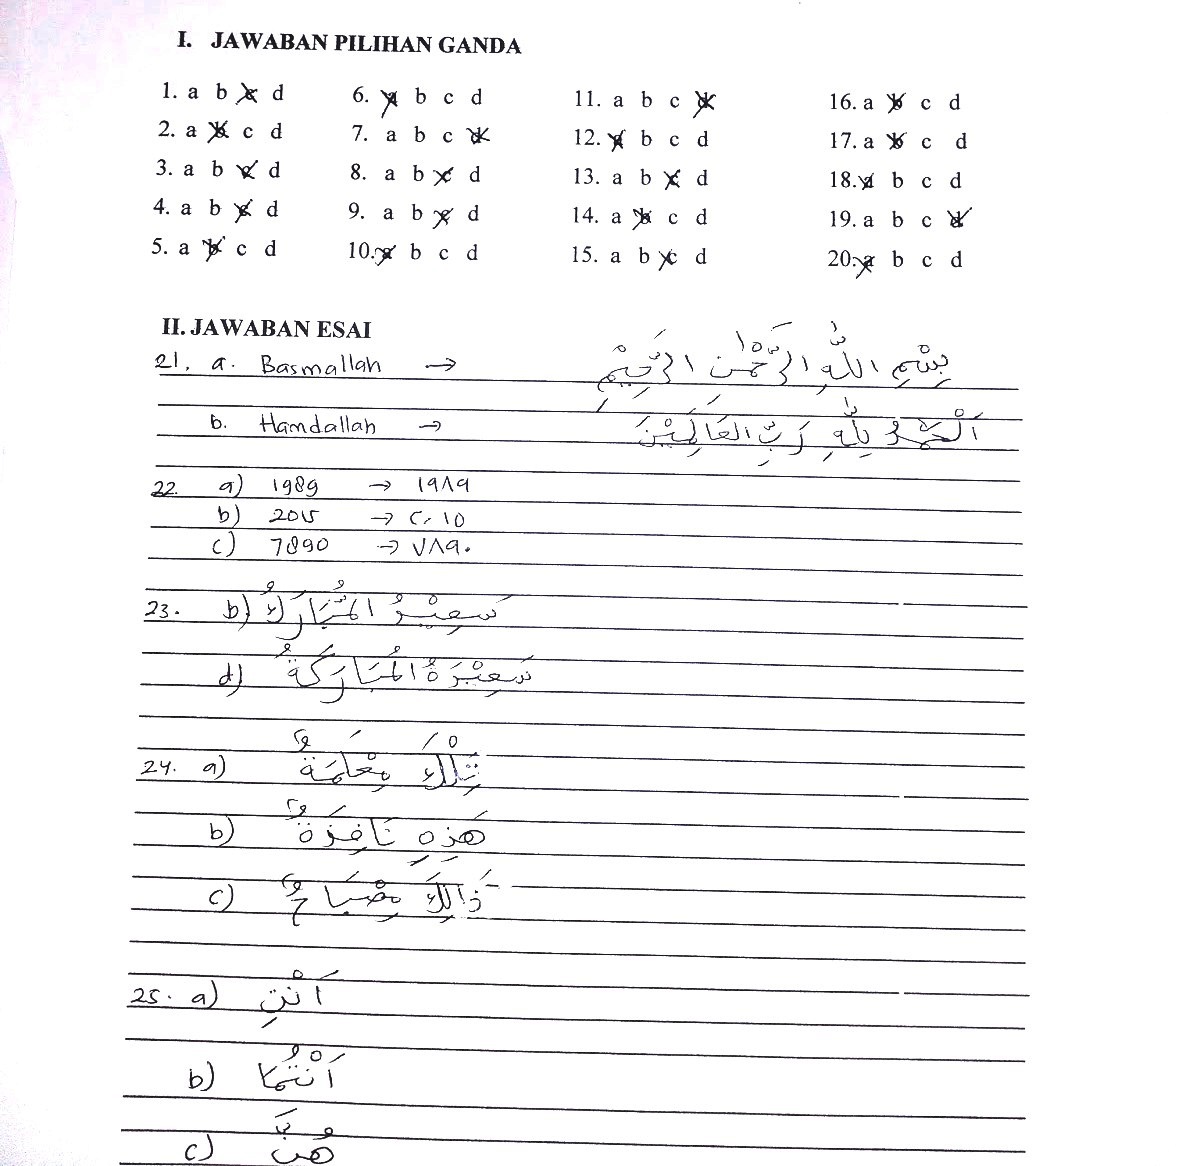 I. JAWABAN PILIHAN GANDA
1. a b c d 6. a b c d 11. a b c d 16. a b c d
2. a b c d 7. a b c d 12. a b c d 17. a b c d
3. a b c d 8. a b c d 13. a b c d 18. a b c d
4. a b c d 9. a b c d 14. a b c d 19. a b c d
5. a b c d 10. a b c d 15. a b c d 20. a b c d
II. JAWABAN ESAI
21. a. Basmallah → بِسْمِ اللّٰهِ الرَّحْمٰنِ الرَّحِيْمِ
b. Hamdallah → اَلْحَمْدُ لِلّٰهِ رَبِّ العَالَمِيْنَ
22. a) 1989 → ١٩٨٩
b) 2015 → ٢٠١٥
c) 7890 → ٧٨٩٠
23. b)
d) المُبَارَكَةُ
24. a) تِلْكَ مِعْلَمَةٌ
b) هَذِهِ نَافِزَةٌ
c) ذَالِكَ مِصْبَاحٌ
25. a) اَنْتِ
b) اَنْتُمَا
c) هُنَّ